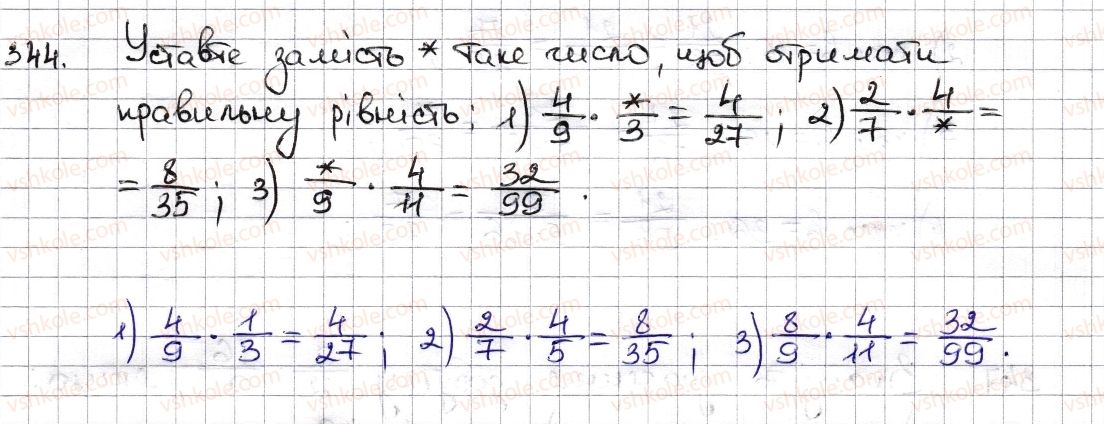 344. Уставте замість * таке число, щоб отримати
правильну рівність: 1) 4/9 · */3 = 4/27 ; 2) 2/7 · 4/* =
= 8/35 ; 3) */9 · 4/11 = 32/99 .
1) 4/9 · 1/3 = 4/27 ; 2) 2/7 · 4/5 = 8/35 ; 3) 8/9 · 4/11 = 32/99 .